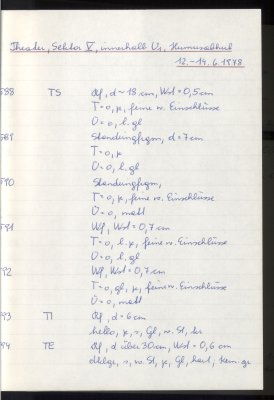 Theater, Sektor V, innerhalb U1, Humusabhub
12.-14.6.1978
588 TS Rf, d~18 cm, Wst=0,5cm
T=0, k, feine w. Einschlüsse
Ü=0, l. gl
589 Standringfrgm, d=7cm
T=0, k
Ü=0, l. gl
590 Standringfrgm,
T=0, k, feine w. Einschlüsse
Ü=0, matt
591 Wf, Wst=0,7cm
T=0, l. k, feine w. Einschlüsse
Ü=0, l. gl
92 Wf, Wst=0,7cm
T=0, gl, k, feine w. Einschlüsse
Ü=0, matt
593 TI Rf, d=6cm
hello, k, s, Gl, w. St,
594 TE Rf, d über 30cm, Wst=0,6 cm
s, w. St, k, Gl, hart,